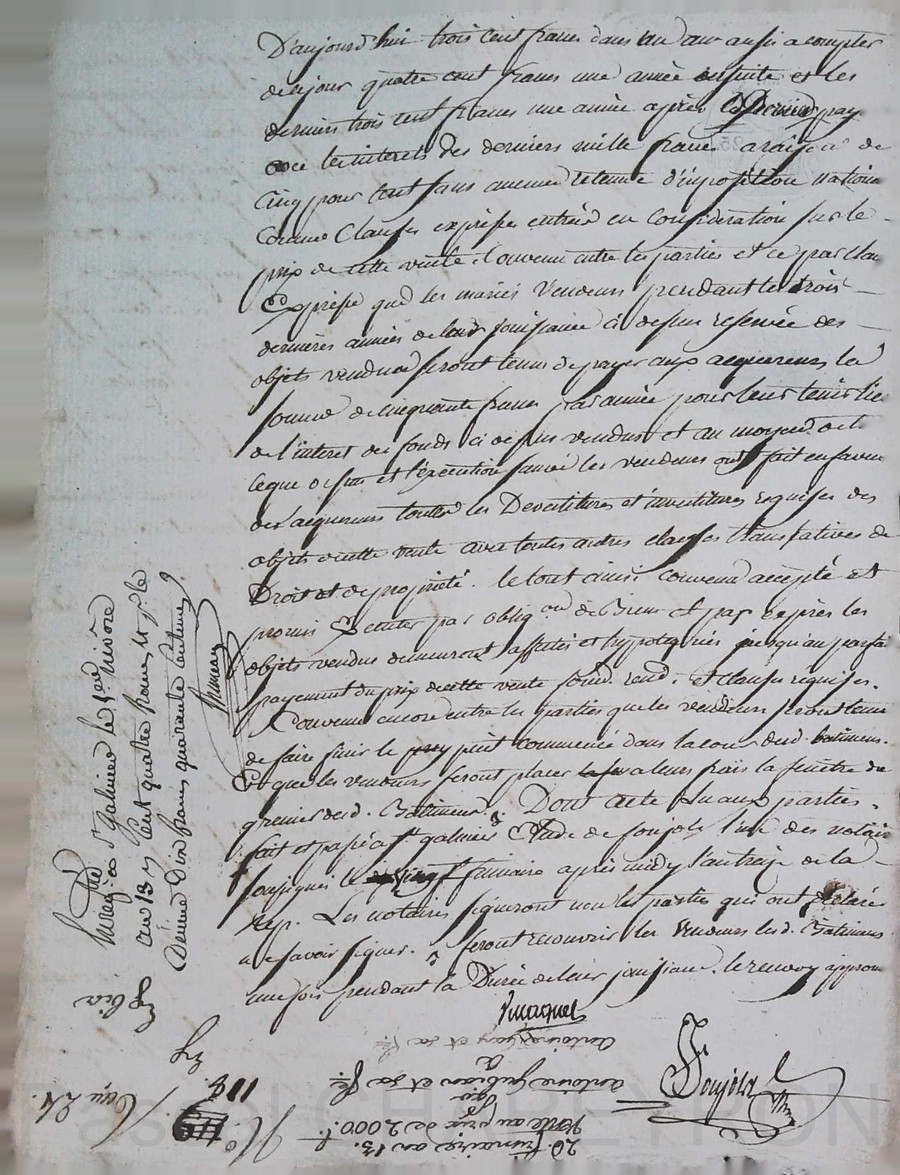 D'aujourd'hui trois cent francs dans un an aussi a compter
de ce jour quatre cent francs une année ensuite et les
derniers trois cent francs une année après le dernier pay
avec les interets des derniers mille francs a raison de
Cinq pour cent sans aucune retenue d'imposition nationa
Comme Clauses expresses entrées en Consideration sur le
prix de cette vente Convenu entre les parties et ce par clau
Expresse que les mariés Vendeurs pendant les trois
dernières années de leur jouissance ci dessus reservée des
objets vendus seront tenus de payer aux acquereurs la
somme de cinquante francs par année pour leur tenir lie
de l'interet des fonds ci dessus vendus et au moyen de
ce que dessus et l'exécution les vendeurs ont fait en faveu
des acquereurs toutes les Devestitures et investitures requises des
objets de cette vente avec toutes autres clauses translatives de
Droit et de propriété. le tout ainsi convenu accepté et
promis Executer par oblig.on de Biens et par exprès les
objets vendus demeurent affectés et hypotequés jusqu'au parfa
payement du prix de cette vente soum. rend. et clauses requises.
Convenu encore entre les parties que les vendeurs seront tenu
de faire finir le puit commencé dans la cour desd. batimens.
Et que les vendeurs feront placer a leurs frais la fenêtre du
grenier desd. Batimens. Dont acte Lu aux parties.
fait et passé a St galmier Etude de Soujols l'un des notair
soussignés le vingt frimaire après midy l'an treize de la
rep. Les notaires signeront non les parties qui ont declaré
ne savoir signer. feront recouvrir les vendeurs lesd. Batimens
une fois pendant la Durée de leur jouissance. le renvoy approu
Enregistré a St galmier le 1er nivôse
an 13 Cent quatre francs
Dixme Dix francs quarante centimes
Soujols
20. frimaire an 13.
Vente au prix de 2000.
par
antoine
a
antoine et sa fe.
113